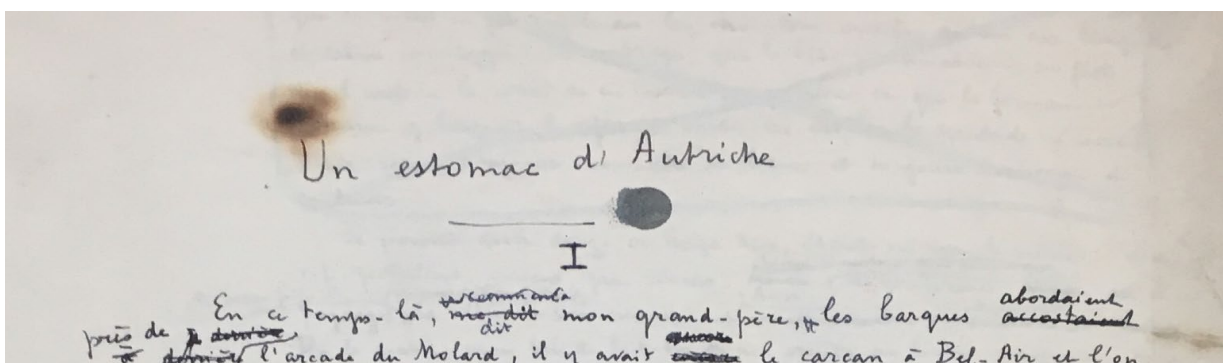 Un estomac d'Autriche
I
En ce temps-là, dit mon grand-père, les barques abordaient
près de l'arcade du Molard, il y avait le carcan à Bel-Air et l'on